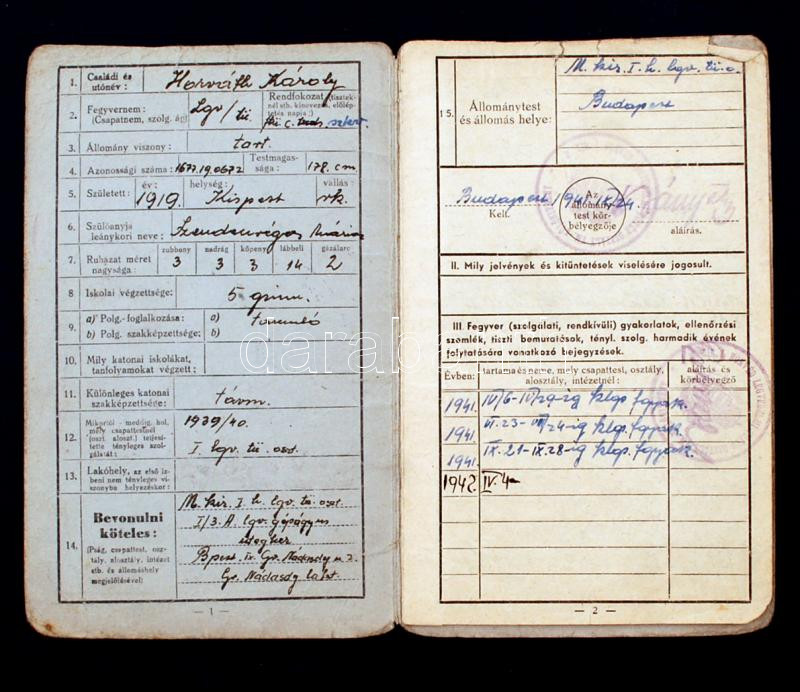 1. Családi és utónév: Horváth Károly
2. Fegyvernem: (Csapatnem, szolg. ág) Lgv/tü. Rendfokozat (tisztek-
nél stb. kinevez., előlép-
tetés napja:)
3. Állomány viszony: tart.
4. Azonossági száma: 1677.19.0672 Testmagas-
sága: 178 cm
5. Született: év: 1919. helység: Kispest vallás: rk.
6. Szülőanyja
leánykori neve: Mária
7. Ruházat méret
nagysága: zubbony nadrág köpeny lábbeli gázálarc
3 3 3 14 2
8 Iskolai végzettsége: 5 gimn.
9. a) Polg.-foglalkozása: a) tanuló
b) Polg. szakképzettsége: b)
10. Mily katonai iskolákat,
tanfolyamokat végzett:
11. Különleges katonai
szakképzettsége: távm.
12. Mikortól - meddig, hol,
mely csapattestnél
(oszt. aloszt.) teljesí-
tette tényleges szol-
gálatát: 1939/40.
I. lgv. tü. oszt.
13. Lakóhely, az első íz-
beni nem tényleges vi-
szonyba helyezéskor:
14. Bevonulni
köteles:
(Pság, csapattest, osz-
tály, alosztály, intézet
stb. és állomáshely
megjelölésével)
M. kir. I. h. lgv. tü. oszt.
I/3. A. lgv. gépágyús
üteghez
Bpest. IX. Gr. Nádasdy u. 2.
Gr. Nádasdy lakt.
— 1 —
15. Állománytest
és állomás helye:
M. kir. I. h. lgv. tü. o.
Budapest
Budapest 1941.
Kelt.
Az
állomány-
test kör-
bélyegzője
aláírás.
II. Mily jelvények és kitüntetések viselésére jogosult.
III. Fegyver (szolgálati, rendkívüli) gyakorlatok, ellenőrzési
szemlék, tiszti bemutatások, tényl. szolg. harmadik évének
folytatására vonatkozó bejegyzések.
Évben: tartama és neme, mely csapattest, osztály,
alosztály, intézetnél: aláírás és
körbélyegző
1941. IV/6-IV/29-ig klgs. fgyak.
1941. VI.23-VII/24-ig klgs. fgyak.
1941. IX.21-IX.28-ig klgs. fgyak.
1942. IV.4-
— 2 —
darabanth